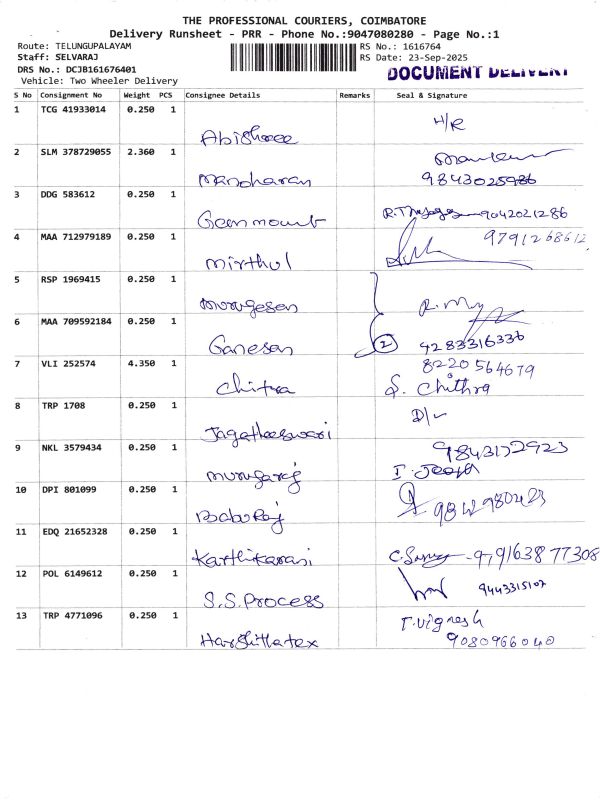 THE PROFESSIONAL COURIERS, COIMBATORE
Delivery Runsheet - PRR - Phone No.:9047080280 - Page No.:1
Route: TELUNGUPALAYAM
RS No.: 1616764
Staff: SELVARAJ
RS Date: 23-Sep-2025
DRS No.: DCJB161676401
DOCUMENT DELIVERY
Vehicle: Two Wheeler Delivery
S No Consignment No Weight PCS Consignee Details Remarks Seal & Signature
1 TCG 41933014 0.250 1
Abishree H/R
2 SLM 378729055 2.360 1
Manoharan 9843025986
3 DDG 583612 0.250 1
Geenmount 9042021286
4 MAA 712979189 0.250 1 9791268612
Mirthul
5 RSP 1969415 0.250 1
Murugesan
6 MAA 709592184 0.250 1
Ganesan 2 4283316336
7 VLI 252574 4.350 1 8220564679
Chitra S. Chithra
8 TRP 1708 0.250 1 D/L
Jagatheeswari
9 NKL 3579434 0.250 1 9843172923
Murugaraj I. Joseph
10 DPI 801099 0.250 1
Baburaj
11 EDQ 21652328 0.250 1
Karthikarani
12 POL 6149612 0.250 1
S.S.Process 9443315107
13 TRP 4771096 0.250 1 T.Vignesh
Harshittatex 9080966040